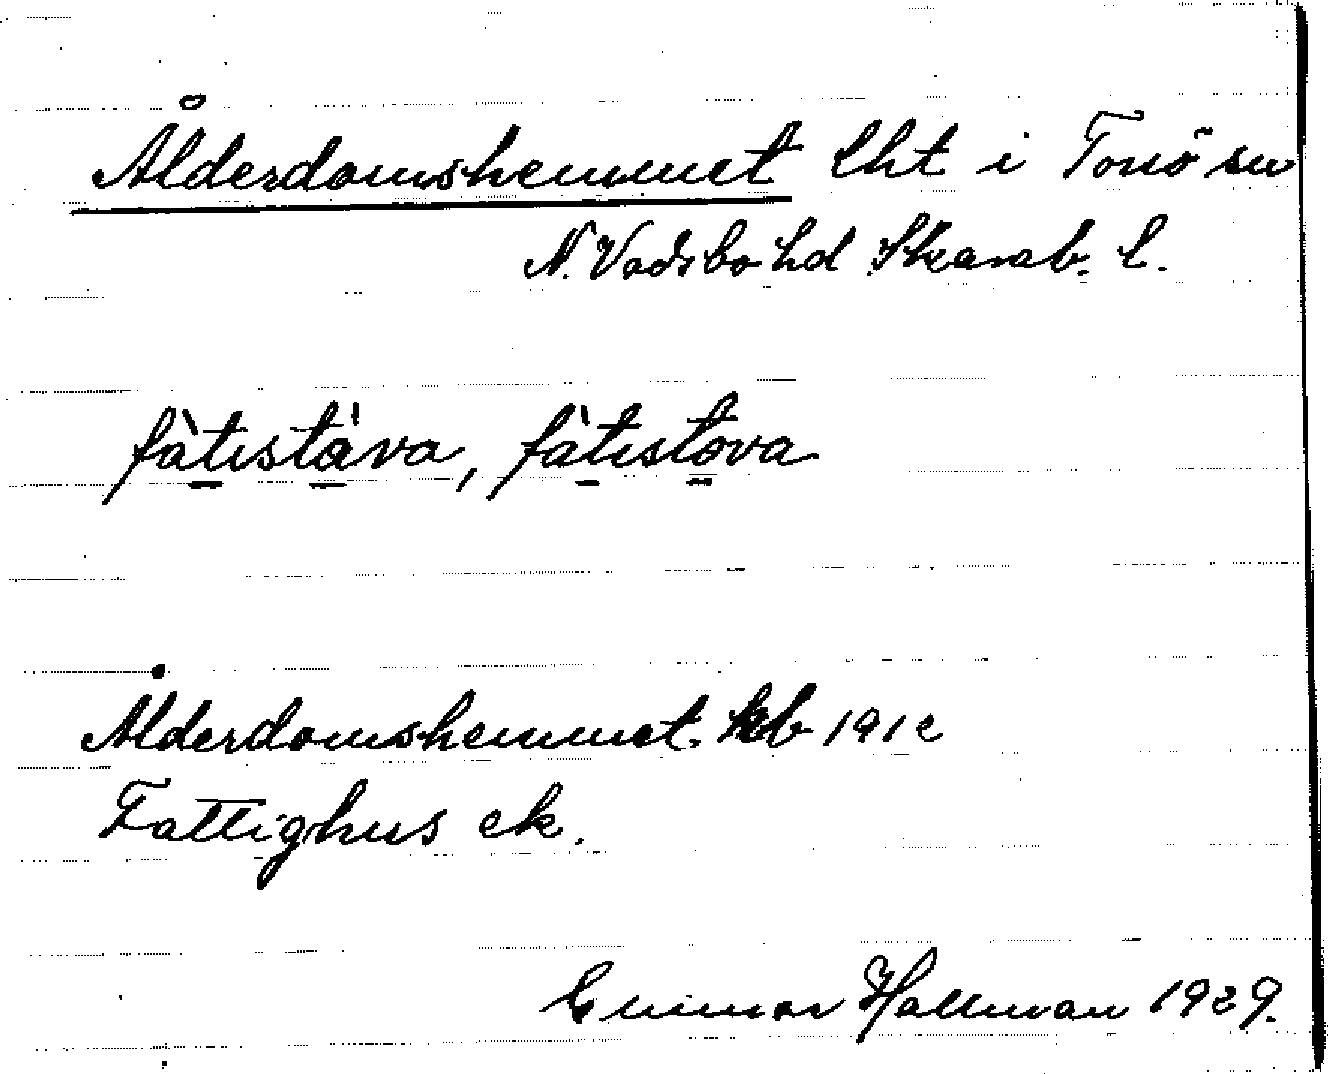 Ålderdomshemmet lht i Torsö sn
N. Vadsbo hd Skarab. l.
fàtıstäva, fàtıstova
Ålderdomshemmet. kb 1912
Fattighus ek.
Gunnar Hallman 1929.